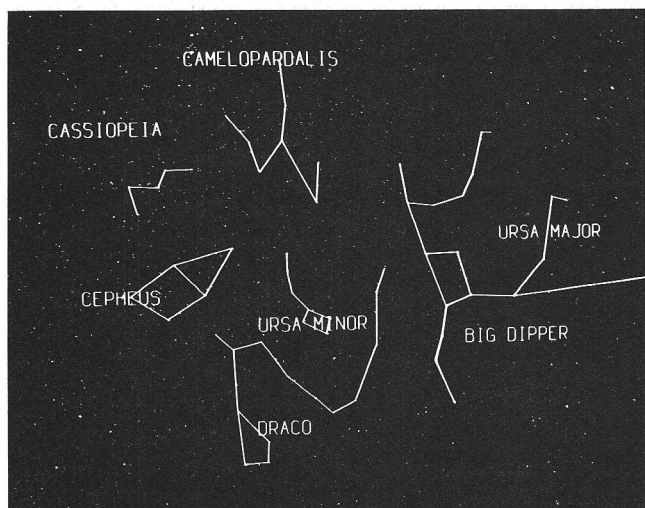 CAMELOPARDALIS
CASSIOPEIA
URSA MAJOR
CEPHEUS
URSA MINOR
BIG DIPPER
DRACO